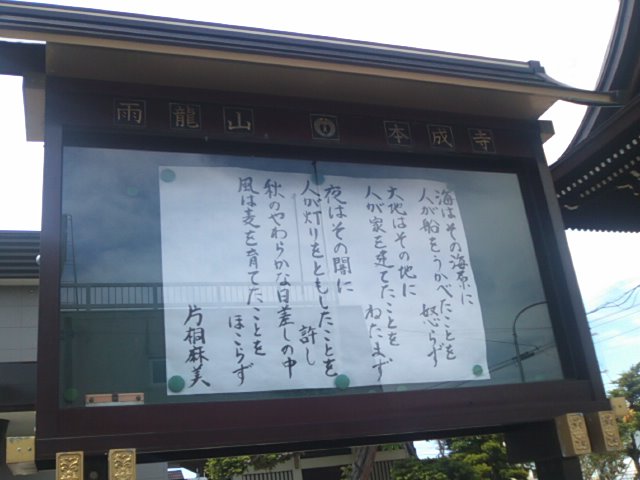 雨龍山 本成寺
海はその海原に
人が船をうかべたことを
怒らず
大地はその地に
人が家を建てたことを
ねたまず
夜はその闇に
人が灯りをともしたことを
許し
秋のやわらかな日差しの中
風は麦を育てたことを
ほこらず
片桐麻美